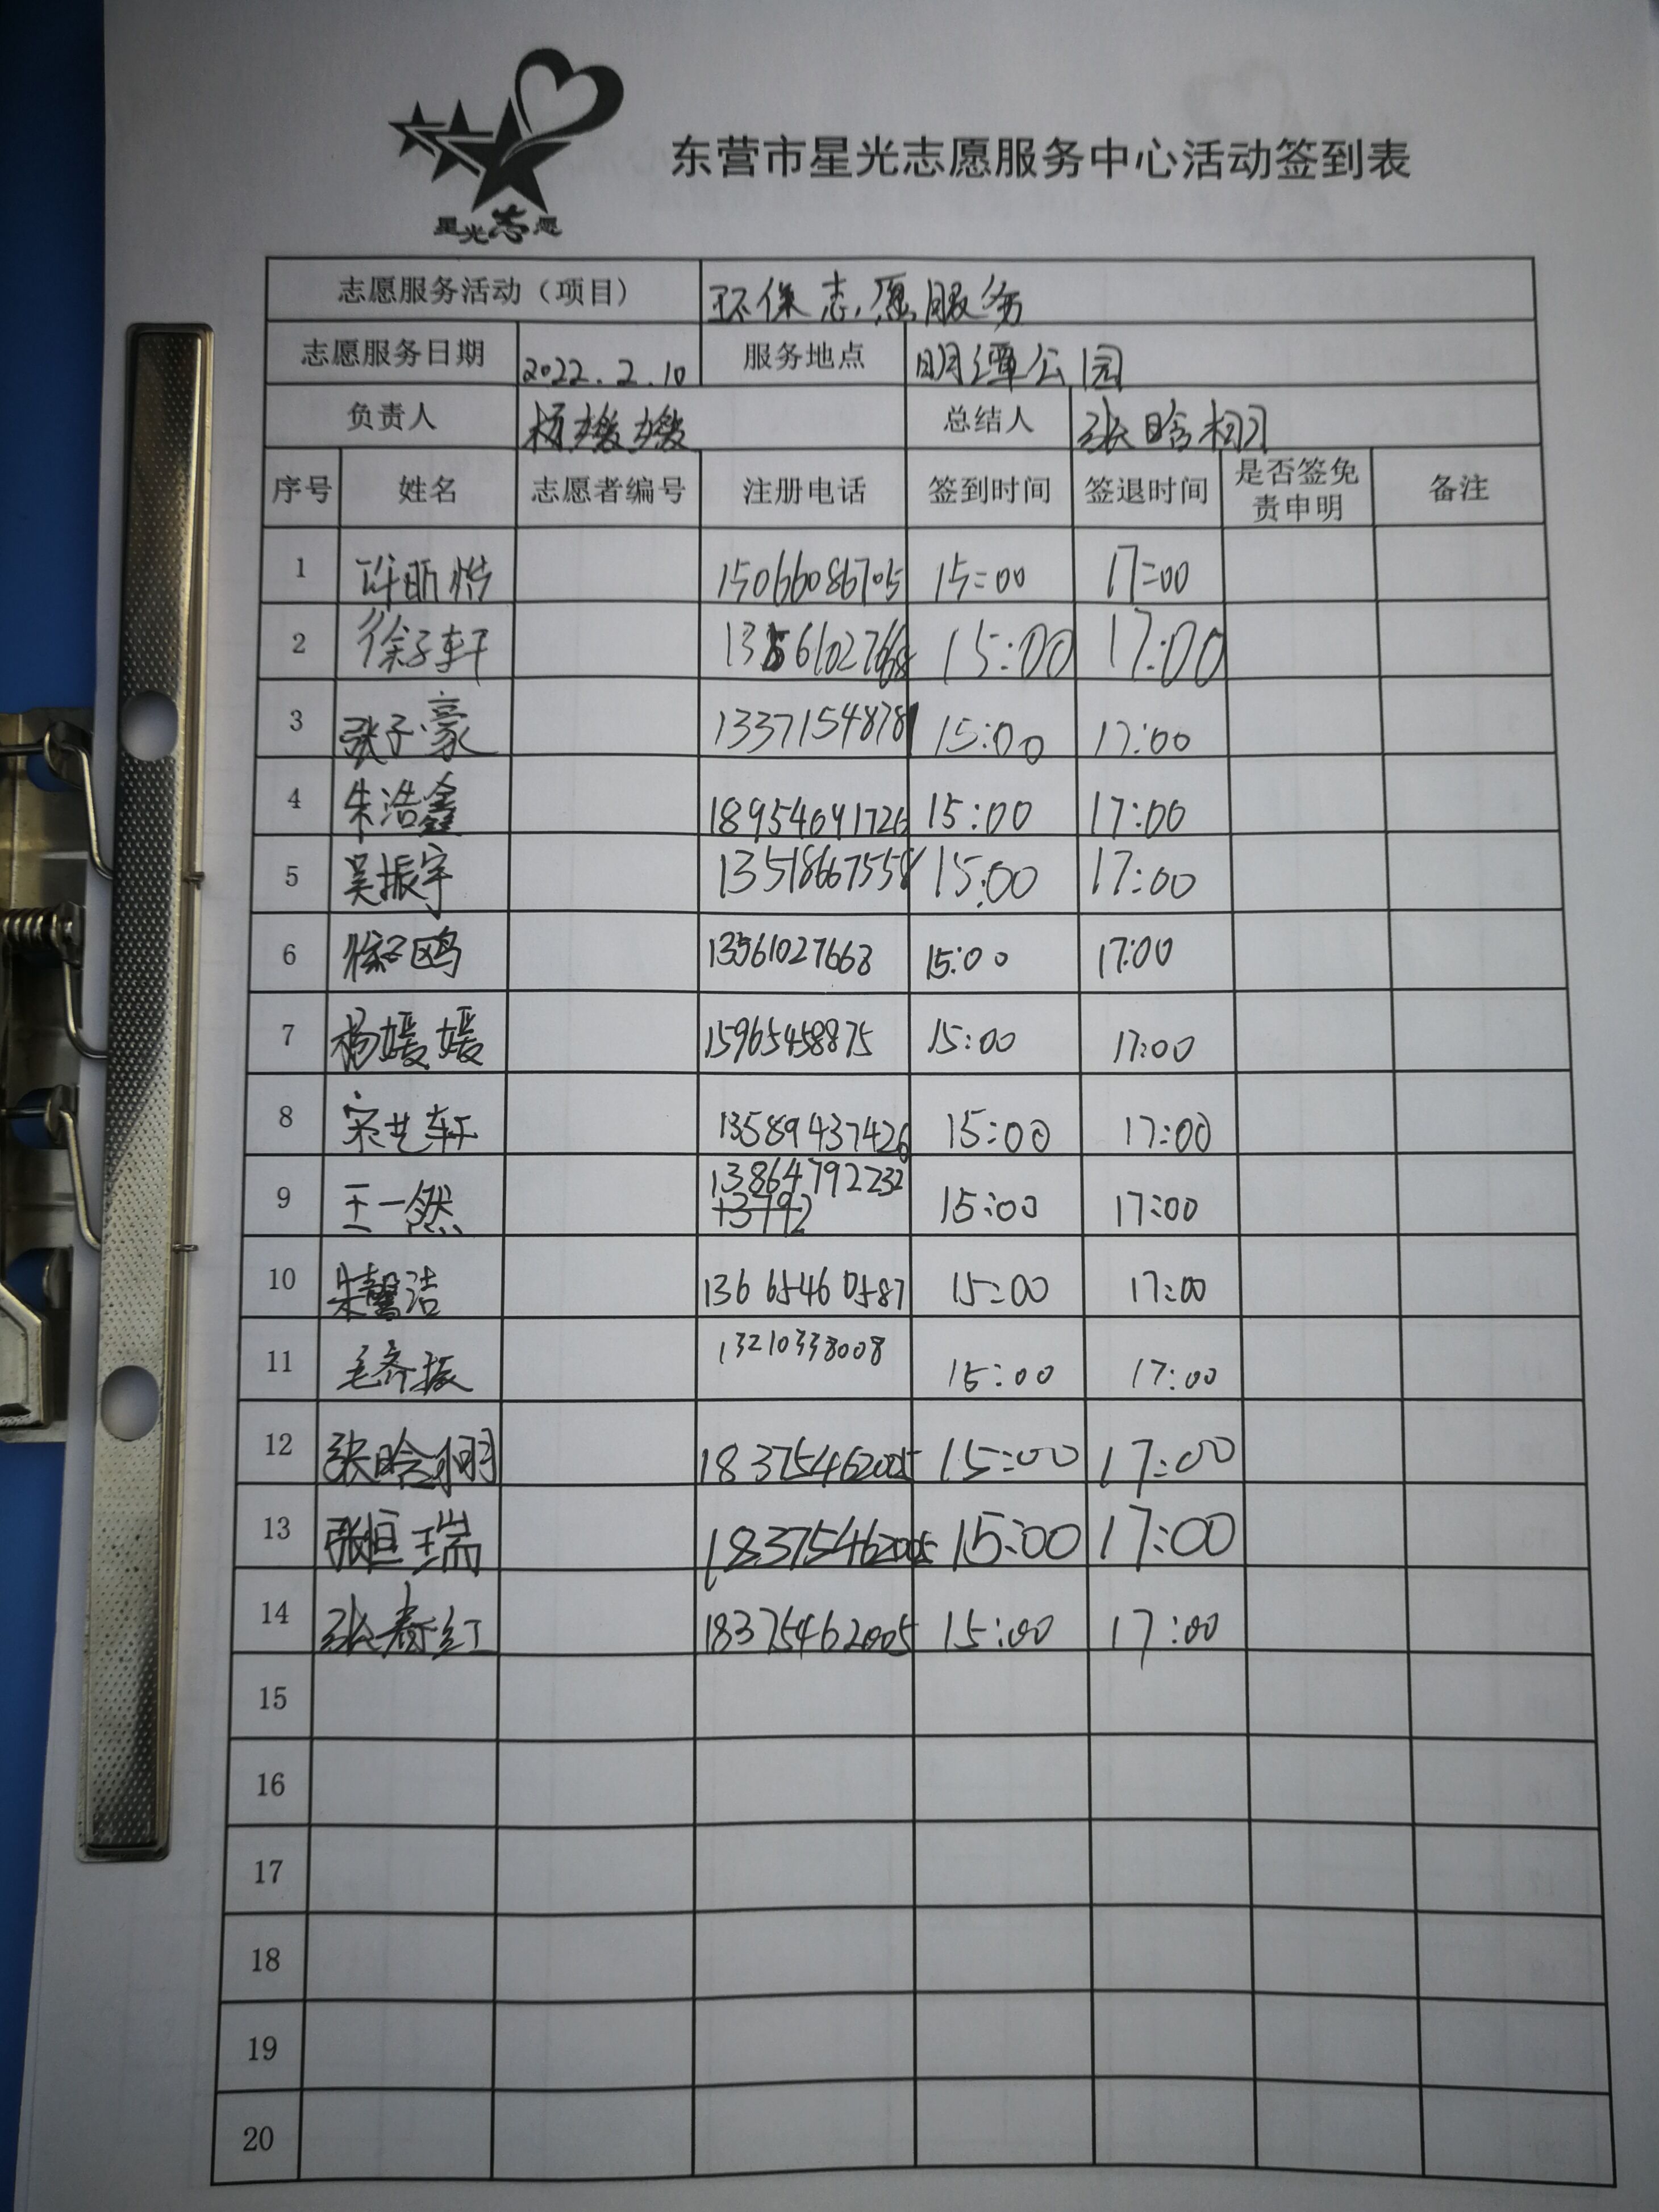 星光志愿
东营市星光志愿服务中心活动签到表
志愿服务活动（项目） 环保志愿服务
志愿服务日期 2022.2.10 服务地点 明潭公园
负责人 杨媛媛 总结人 张晗栩
序号 姓名 志愿者编号 注册电话 签到时间 签退时间 是否签免责申明 备注
1 许昕怡 15066086705 15:00 17:00
2 徐子轩 13561027668 15:00 17:00
3 张子豪 13371548781 15:00 17:00
4 朱浩鑫 18954641726 15:00 17:00
5 吴振宇 13518667558 15:00 17:00
6 徐子鸥 13561027668 15:00 17:00
7 杨媛媛 15965458875 15:00 17:00
8 宋艺轩 13589437426 15:00 17:00
9 王一然 13864792232 15:00 17:00
10 朱馨洁 13665460587 15:00 17:00
11 毛齐振 13210338008 15:00 17:00
12 张晗栩 18375462005 15:00 17:00
13 张恒瑞 18375462005 15:00 17:00
14 张春红 18375462005 15:00 17:00
15
16
17
18
19
20